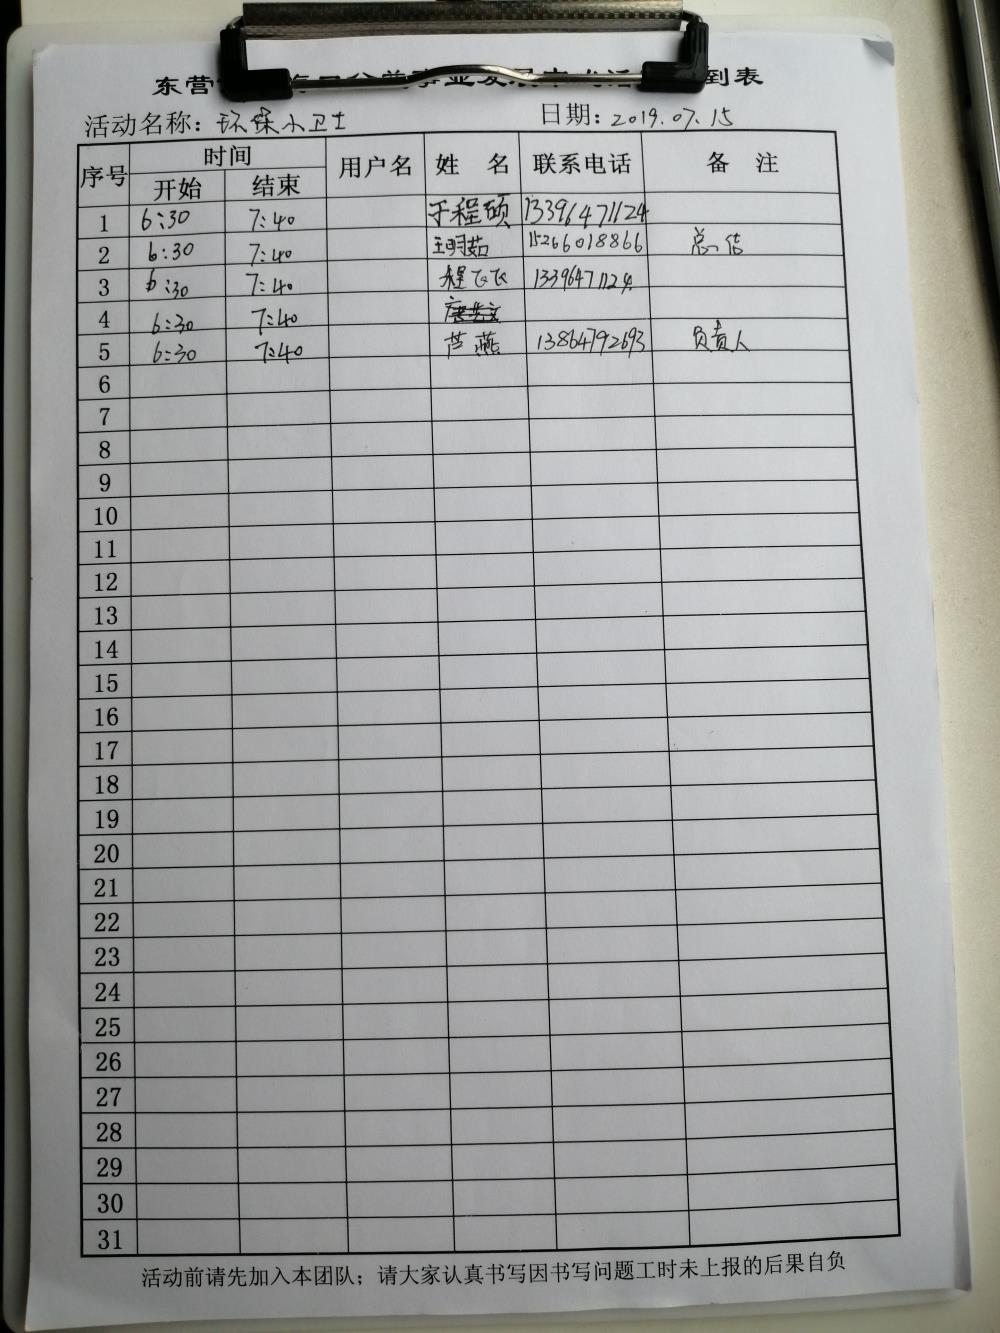 东营
到表
活动名称：环保小卫士 日期：2019.07.15
序号 时间 用户名 姓 名 联系电话 备 注
开始 结束
1 6:30 7:40 于程硕 13396471124
2 6:30 7:40 王明茹 15266018866
3 6:30 7:40 程飞飞 13396471124
4 6:30 7:40
5 6:30 7:40 芦燕 13864792693 负责人
6
7
8
9
10
11
12
13
14
15
16
17
18
19
20
21
22
23
24
25
26
27
28
29
30
31
活动前请先加入本团队；请大家认真书写因书写问题工时未上报的后果自负